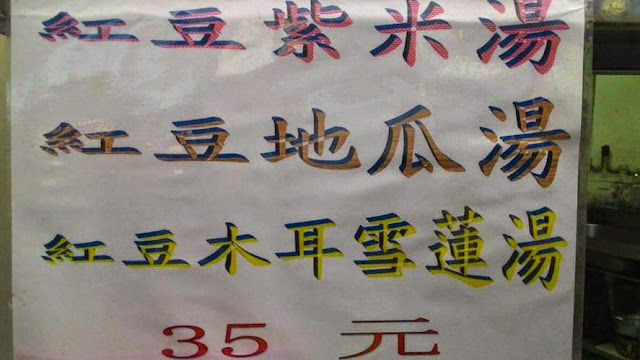 紅豆紫米湯
紅豆地瓜湯
紅豆木耳雪蓮湯
35 元